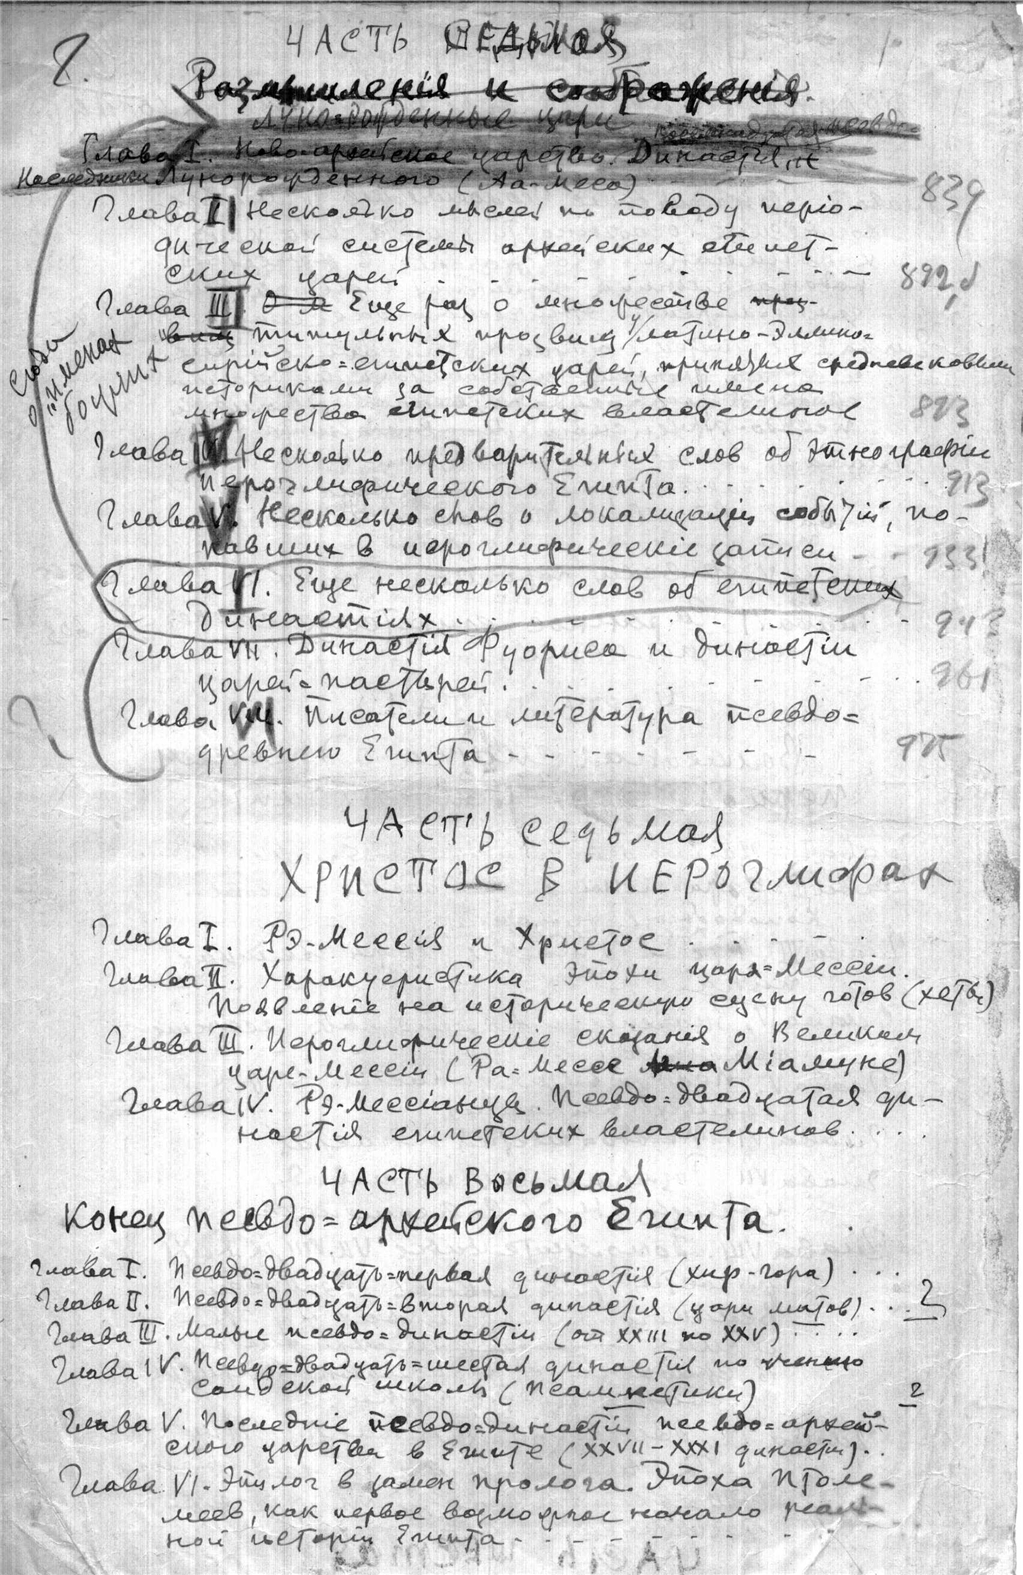 2.
ЧАСТЬ СЕДЬМАЯ
Размышленія и соображенія.
Луно=рожденные цари
Глава I. Ново-архейское царство. Династія
Наследники Лунорожденного (Аа-Меса) 839
Глава II Несколько мыслей по поводу періо-
дической системы архейских египет-
ских царей . . . . . . 892
Глава III Еще раз о множестве
титульных прозвищ латино-эллино=
сирійско=египетских царей, принятых средневековыми
историками за собственные имена
множества египетских властелинов 893
Сюда
о "именах
богиях
Глава IV Несколько предварительных слов об этнографіи
іероглифического Египта . . . . . . 913
Глава V. Несколько слов о локализаціи событій, по-
павших в іероглифическіе записи - - 933
Глава VI. Еще несколько слов об египетских
династіях . . . . . . 943
Глава VII. Династія Фуориса и династіи
царей=пастырей . . . . . . 961
?
Глава VIII. Писатели и литература псевдо=
древнего Египта - - - - - - 975
ЧАСТЬ седьмая
ХРИСТОС В ИЕРОГЛИФАХ
Глава I. Рэ-Мессія и Христос . . . .
Глава II. Характеристика эпохи царя=Мессіи.
Появленіе на историческую сцену готов (хеты)
Глава III. Иероглифическіе сказанія о Великом
царе-Мессіи (Ра=Мессе Міамуне)
Глава IV. Рэ-Мессіанцы. Псевдо=двадцатая ди-
настія египетских властелинов . . . .
ЧАСТЬ Восьмая
Конец псевдо=архейского Египта.
Глава I. Псевдо=двадцать=первая династія (хир-гора) . . .
Глава II. Псевдо=двадцать=вторая династія (цари митов) . . . ?
Глава III. Малые псевдо=династіи (от XXIII по XXV) . . . .
Глава IV. Псевдо=двадцать=шестая династія по ученію
саидской школы (Псамметики) ?
Глава V. Последніе псевдо=династіи псевдо=архей-
ского царства в Египте (XXVII-XXXI династіи) . .
Глава VI. Эпилог в замен пролога. Эпоха Птоле-
меев, как первое возможное начало реаль-
ной исторіи Египта - - - - - -